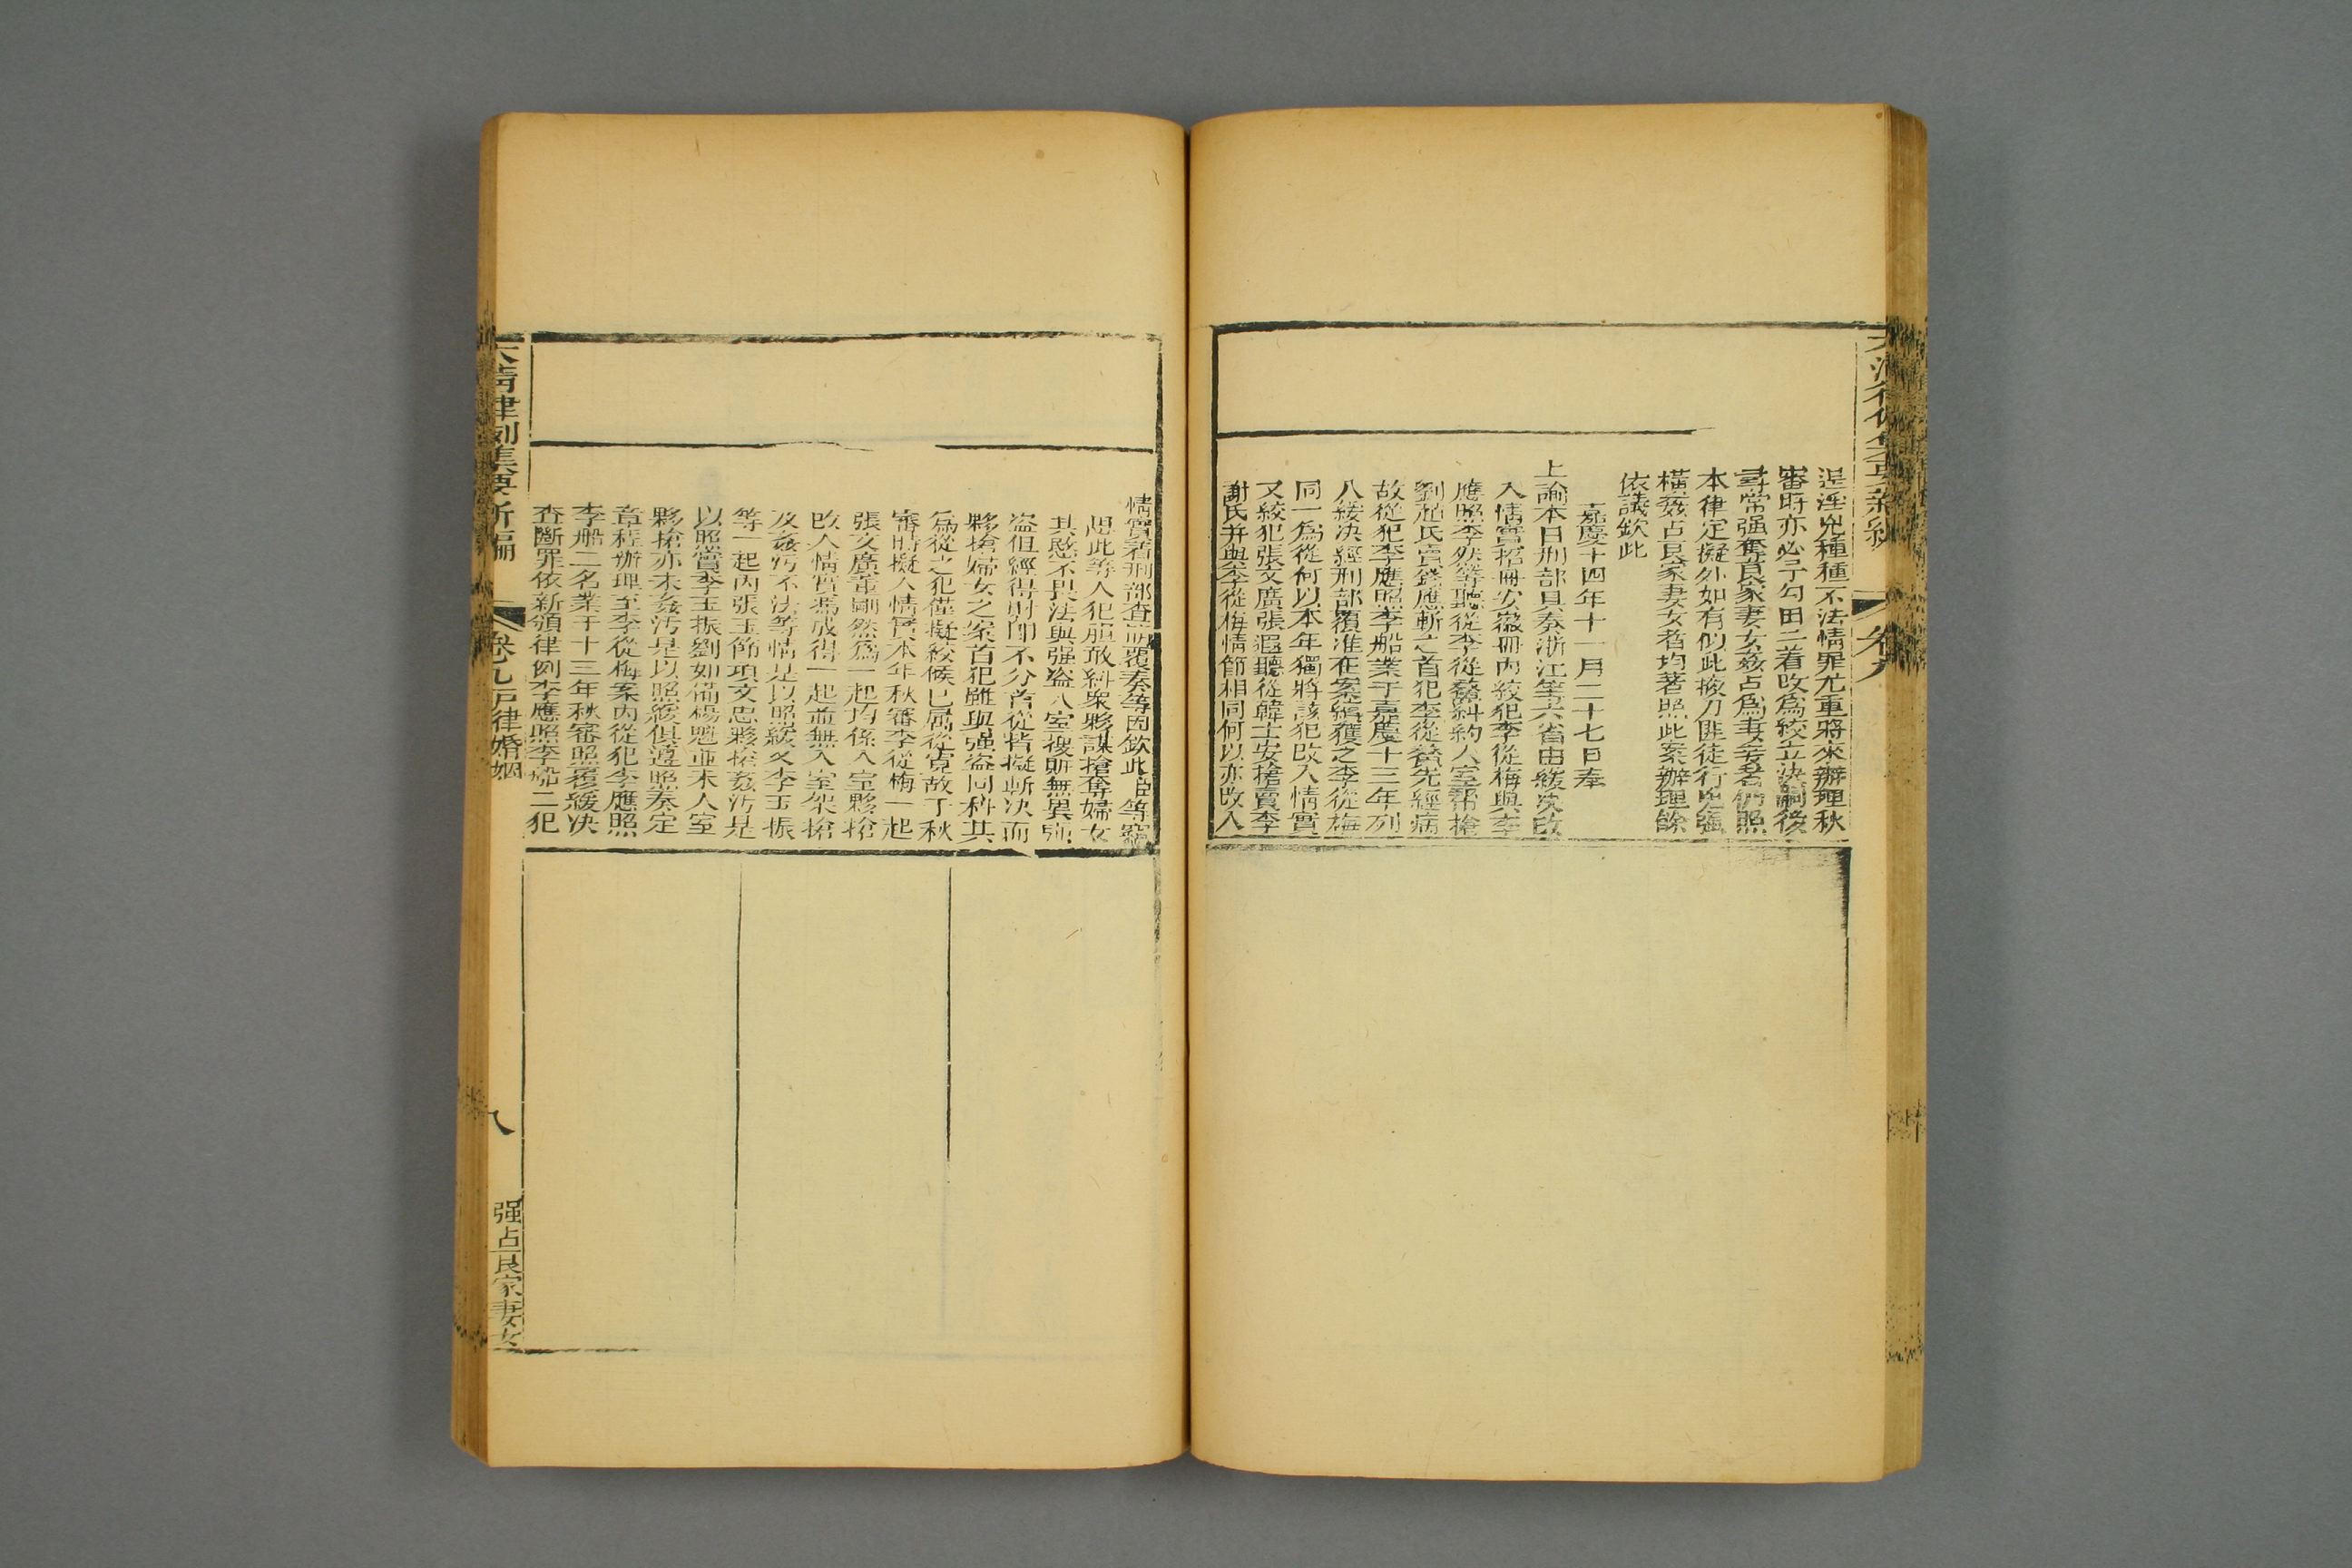 卷九
逞淫兇種種不法情罪尤重將來辦理秋
審時亦必予勾田二着改爲絞立決嗣後
尋常强奪良家妻女姦占爲妻妾者仍照
本律定擬外如有似此掖刀匪徒行兇强
橫姦占良家妻女者均著照此案辦理餘
依議欽此
嘉慶十四年十一月二十七日奉
上諭本日刑部具奏浙江等六省由緩決改
入情實招冊安徽冊內絞犯李從梅與李
應照李然等聽從李從贊糾約人室幫搶
劉趙氏賣錢應斬之首犯李從贊先經病
故從犯李應照李船業于嘉慶十三年列
入緩決經刑部覆准在案續獲之李從梅
同一爲從何以本年獨將該犯改入情實
又絞犯張文廣張遐聽從韓士安搶賣李
謝氏并與李從梅情節相同何以亦改入
情實着刑部查明覆奏等因欽此臣等竊
思此等人犯胆敢糾衆夥謀搶奪婦女
其愍不畏法與强盜入室搜賍無異強
盜但經得財卽不分首從皆擬斬決而
夥搶婦女之案首犯雖與强盜同科其
爲從之犯僅擬絞候已屬從寬故于秋
審時擬入情實本年秋審李從梅一起
張文廣董剛然爲一起均係入室夥搶
改入情實馮成得一起並無入室架搶
及姦污不法等情是以照緩又李玉振
等一起內張玉節項文忠夥搶姦污是
以照實李玉振劉如簡楊魁並未入室
夥搶亦未姦污是以照緩俱遵照奏定
章程辦理至李從梅案內從犯李應照
李船二名業于十三年秋審照覆緩決
查斷罪依新頒律例李應照李船二犯
大清律例集要新編
卷九戶律婚姻
八
强占良家妻女